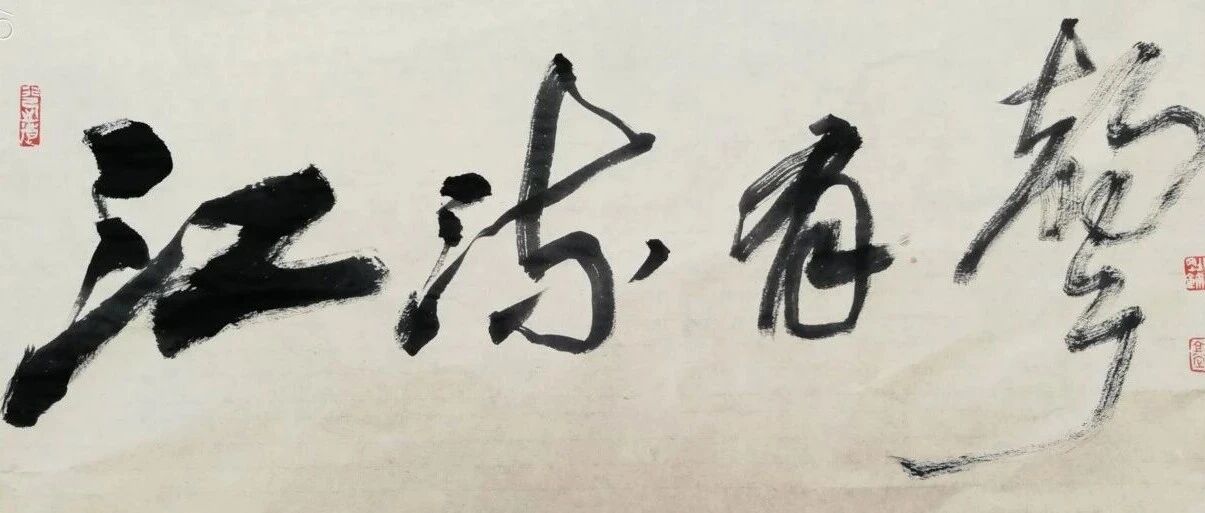 江流有聲